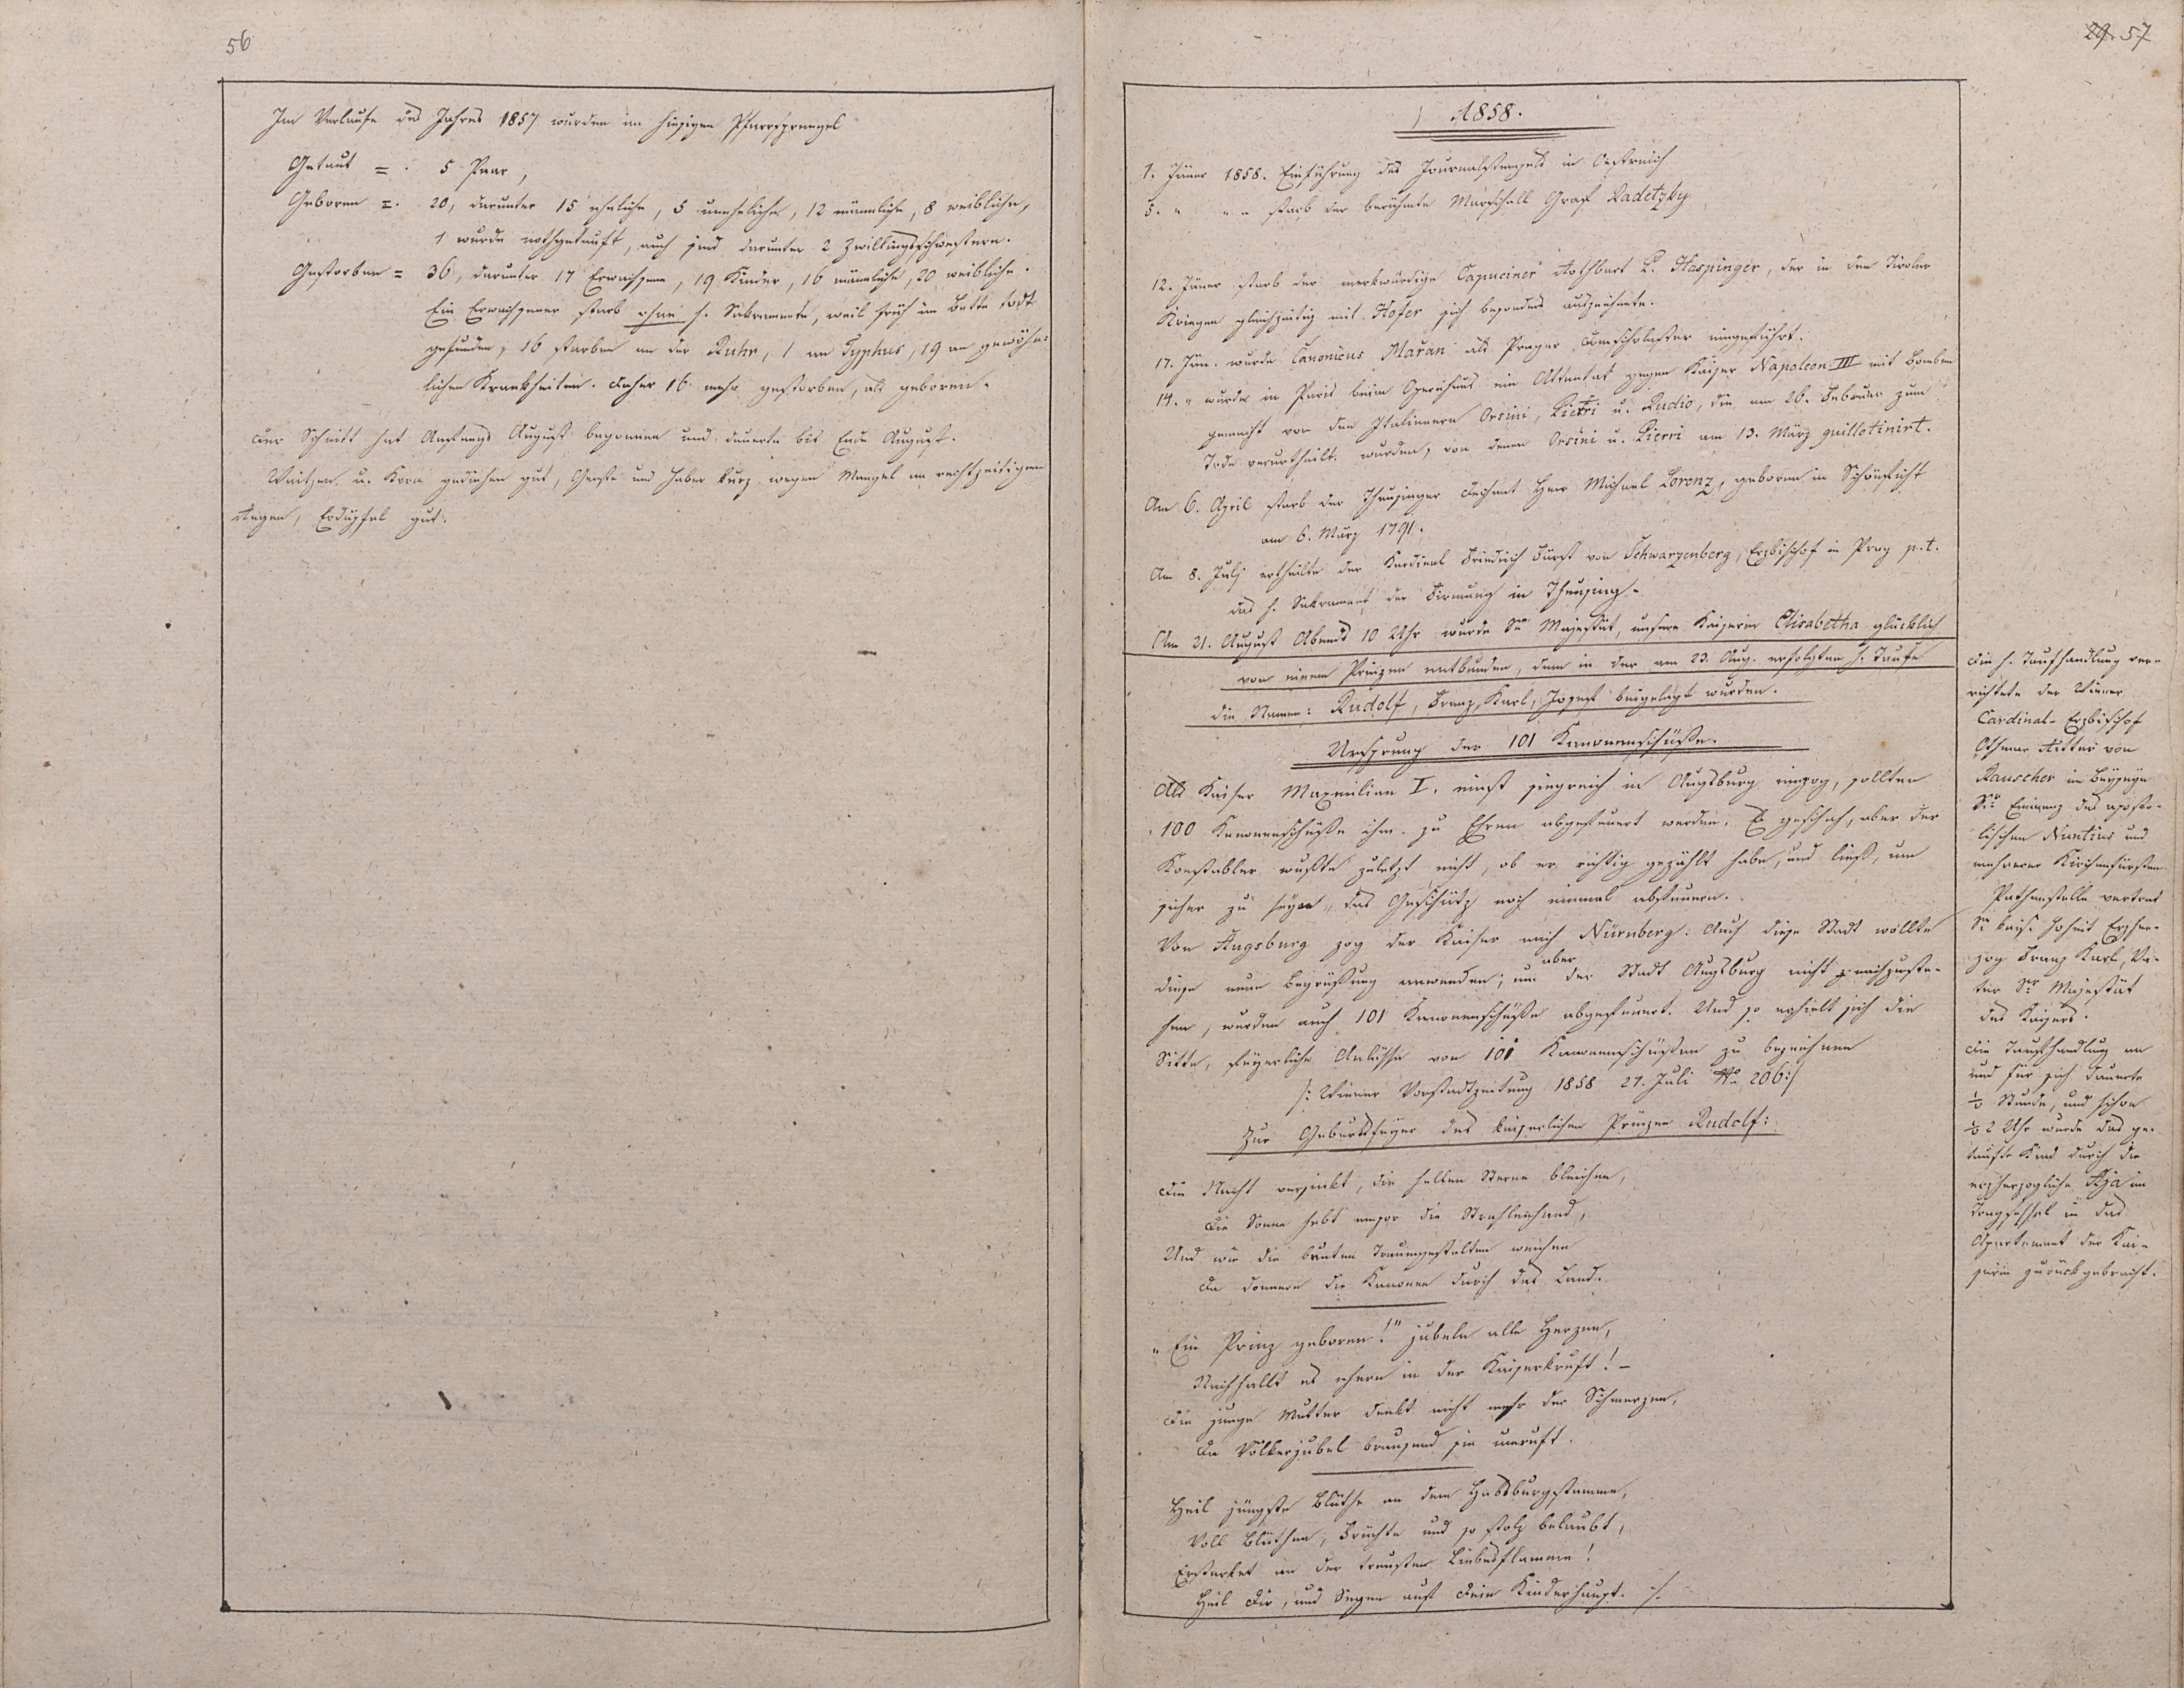 56
Im Verlaufe des Jahres 1857 wurden im hiesigen Pfarrsprengel
Getraut = 5 Paar,
Geboren = 20, darunter 15 eheliche, 5 uneheliche, 12 männliche, 8 weibliche,
1 wurde nothgetauft, auch sind darunter 2 Zwillingsschwestern.
Gestorben = 36, darunter 17 Erwachsene, 19 Kinder, 16 männliche, 20 weibliche.
Ein Erwachsener starb ohne h. Sakramente, weil früh im Bette todt
gefunden, 16 starben an der Ruhr, 1 an Typhus, 19 an gewöhn=
lichen Krankheiten. Daher 16 mehr gestorben, als geboren.
Der Schnitt hat Anfangs August begonnen und dauerte bis Ende August.
Weitzen u. Korn gediehen gut, Gerste und Haber kurz wegen Mangel an rechtzeitigem
Regen, Erdäpfel gut.
29. 57
1858.
1. Jäner 1858. Einführung des Journalstempels in Oestreich
5. " " " starb der berühmte Marschall Graf Radetzky
12. Jäner starb der merkwürdige Capuciner Rothbart P. Haspinger, der in den Tiroler
Kriegen gleichzeitig mit Hofer sich besonders auszeichnete.
17. Jän. wurde Canonicus Mařan als Prager Domscholaster eingeführt.
14. " wurde in Paris beim Opernhaus ein Attentat gegen Kaiser Napoleon III mit Bomben
gemacht von den Italienern Orsini, Pietri u. Rudio, die am 26. Februar zum
Tode verurtheilt wurden, von denen Orsini u. Pierri am 13. März guillotinirt.
Am 6. April starb der Theusinger Dechant Herr Michael Lorenz, geboren in Schönficht
am 6. März 1791.
Am 8. Julj ertheilte der Kardinal Friedrich Fürst von Schwarzenberg, Erzbischof in Prag p.t.
das h. Sakrament der Firmung in Theusing.
Am 21. August Abends 10 Uhr wurde Se Majestät, unsere Kaiserin Elisabetha glücklich
von einem Prinzen entbunden, dem in der am 23. Aug. erfolgten h. Taufe
die Namen: Rudolf, Franz, Karl, Josef beigelegt wurden.
Ursprung der 101 Kanonenschüße.
Als Kaiser Maxmilian I. einst siegreich in Augsburg einzog, sollten
100 Kanonenschüße ihm zu Ehren abgefeuert werden. Es geschah, aber der
Konstabler wußte zuletzt nicht, ob er richtig gezählt habe, und ließ, um
sicher zu seyn, das Geschütz noch einmal abfeuern.
Von Augsburg zog der Kaiser nach Nürnberg. Auch diese Stadt wollte
diese neue Begrüßung anwenden; um aber der Stadt Augsburg nicht nachzuste-
hen, wurden auch 101 Kanonenschüße abgefeuert. Und so erhielt sich die
Sitte, feyerliche Anlässe von 101 Kanonenschüßen zu bezeichnen
/: Wiener Vorstadtzeitung 1858 27. Juli No 206 :/
Zur Geburtsfeyer des kaiserlichen Prinzen Rudolf:
Die Nacht versinkt, die hellen Sterne bleichen,
Die Sonne hebt empor die Strahlenhand,
Und wie die bunten Traumgestalten weichen
Da donnern die Kanonen durch das Land.
"Ein Prinz geboren!" jubeln alle Herzen,
Nachhallt es ehern in der Kaisergruft! –
Die junge Mutter denkt nicht mehr der Schmerzen,
Da Völkerjubel brausend sie umruft.
Heil jüngste Blüthe an dem Habsburgstamme,
Voll Blüthen, Früchte und so stolz belaubt,
Erstarket an der treusten Liebesflamme!
Heil Dir, und Segen auf Dein Kinderhaupt. ./.
Die h. Taufhandlung ver-
richtete der Wiener
Cardinal-Erzbischof
Othmar Ritter von
Rauscher im Beyseyn
Sr Eminenz des aposto-
lischen Nuntius und
mehrerer Kirchenfürsten
Pathenstelle vertrat
Se kais. Hoheit Erzher-
zog Franz Karl, Va-
ter Sr Majestät
des Kaisers.
Die Taufhandlung an
und für sich dauerte
1/2 Stunde, und schon
1/2 2 Uhr wurde das ge-
taufte Kind durch die
erzherzogliche Aja im
Tragsessel in das
Apartement der Kai-
serin zurückgebracht.